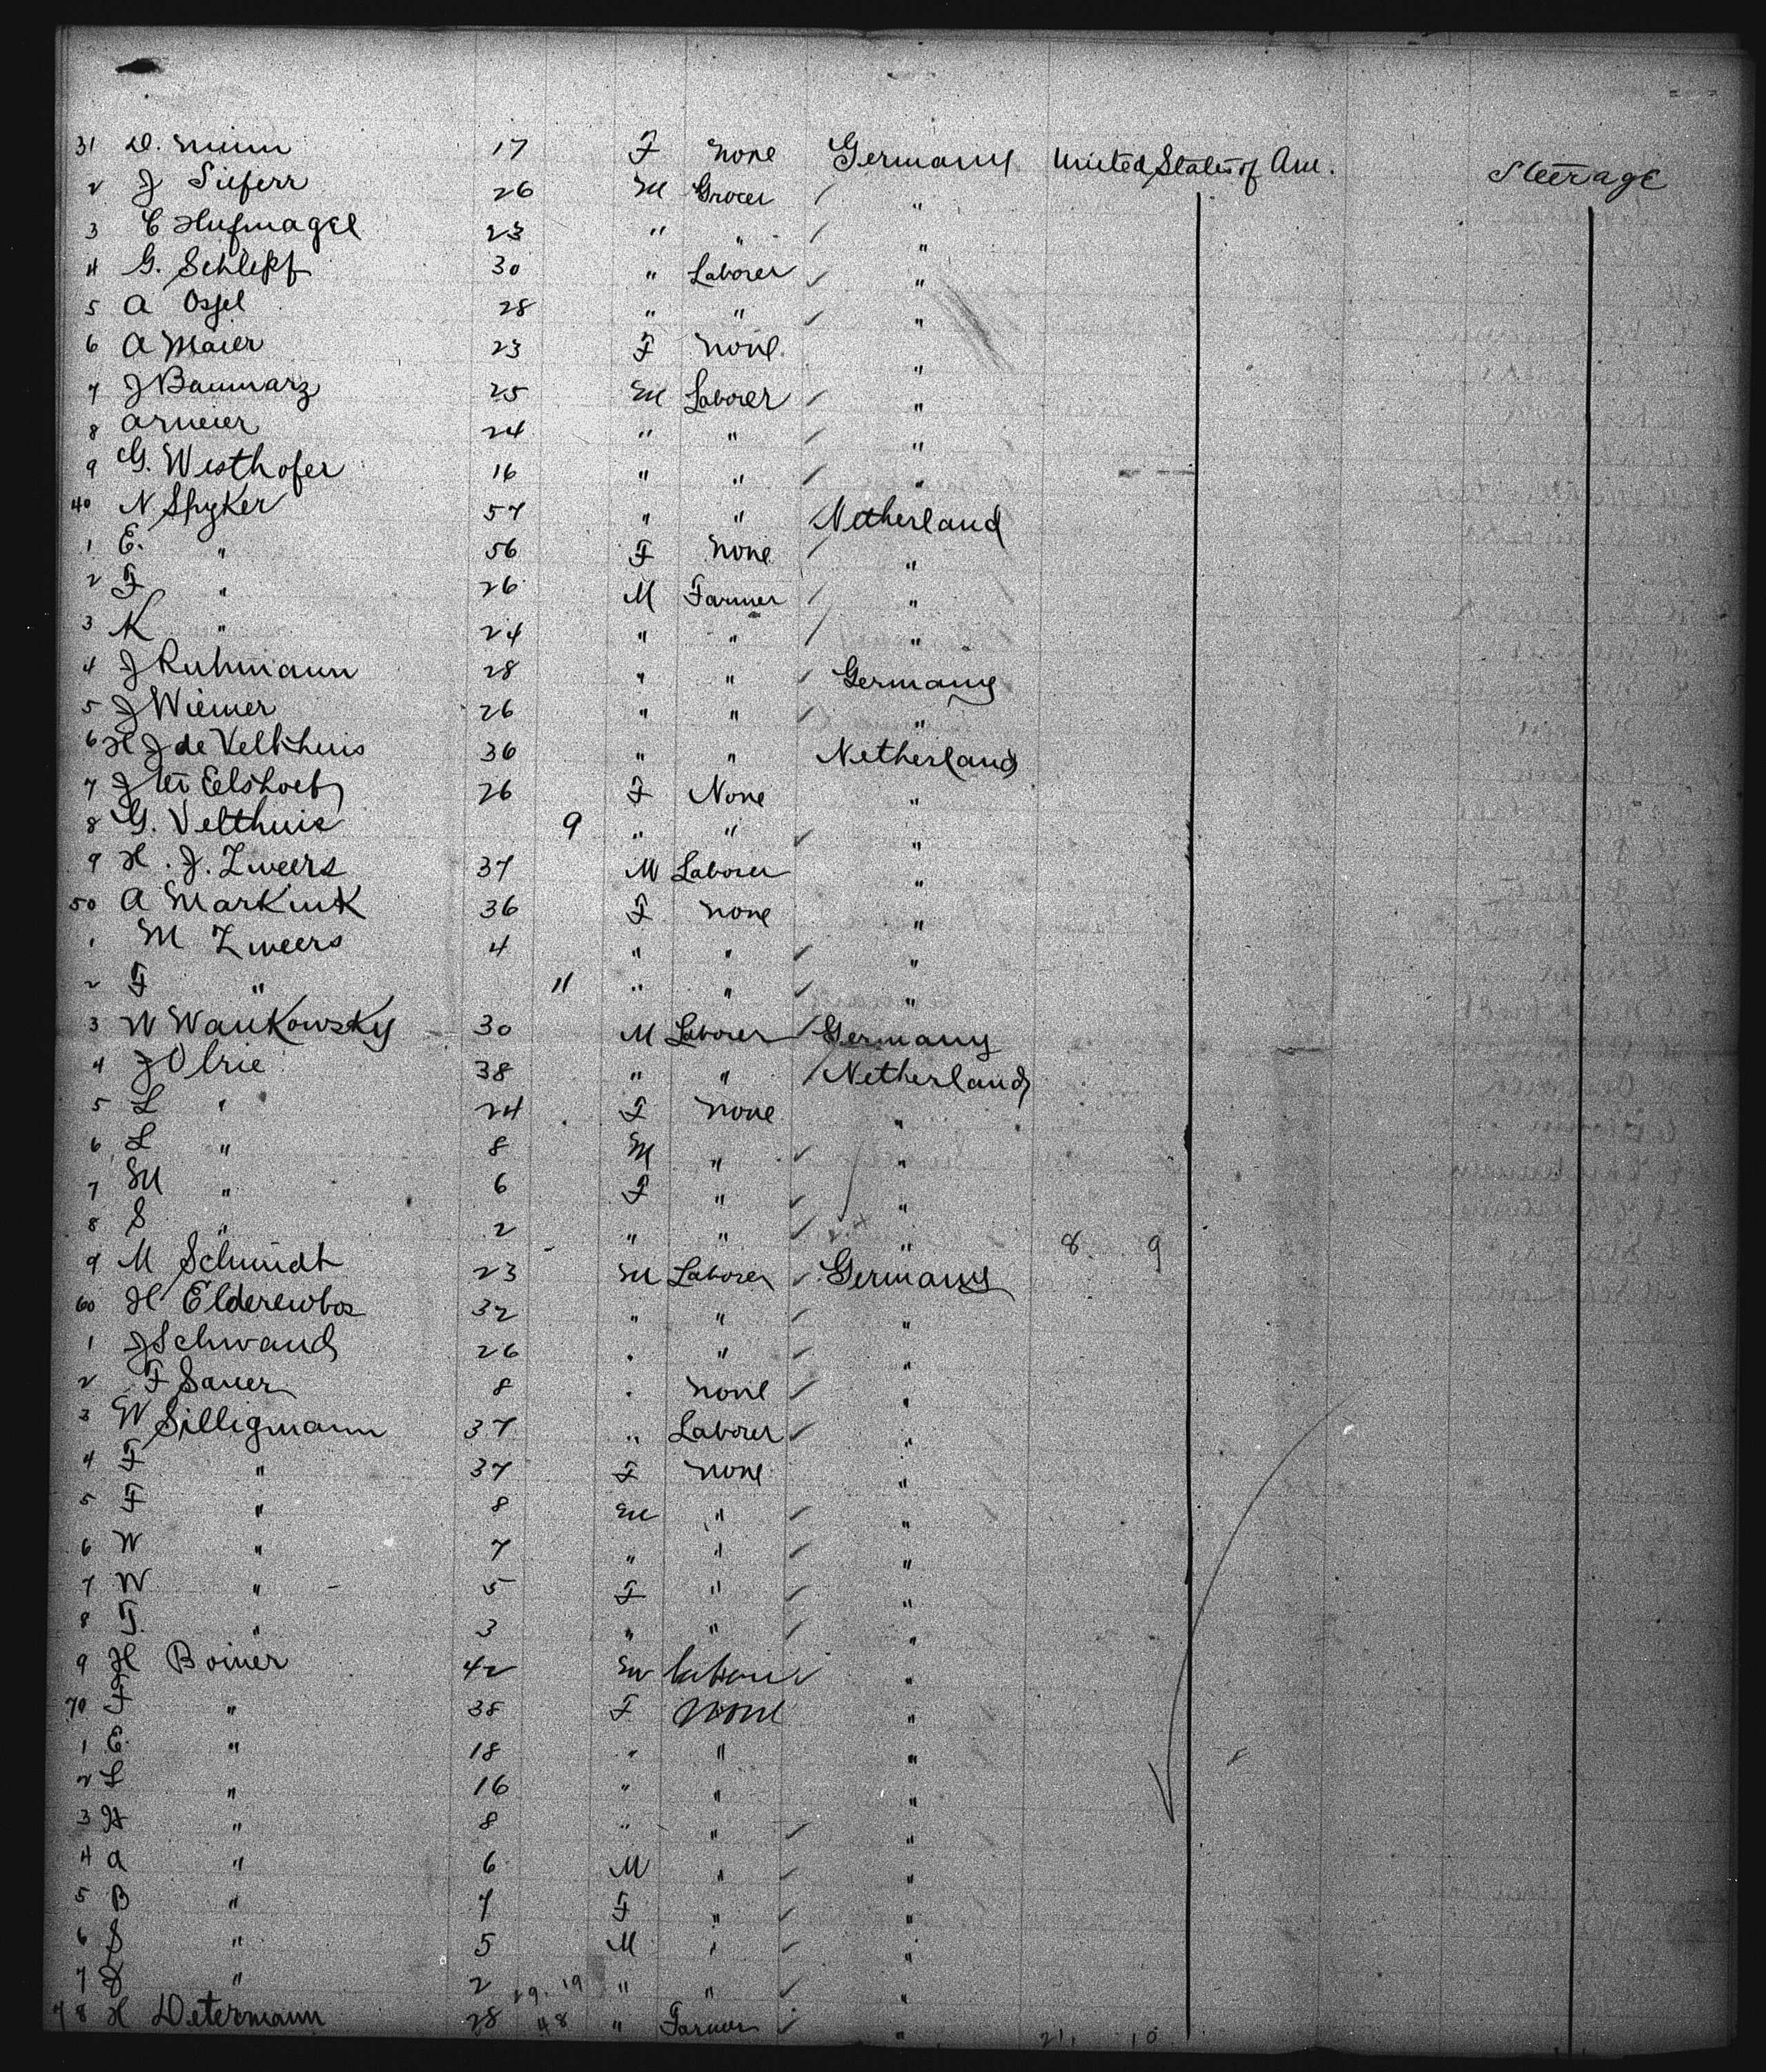 31 D. Mimm 17 F None Germany United States of Am. Steerage
2 J Sieferr 26 M Grocer "
3 C Hufnagel 23 " " "
4 G. Schlepf 30 " Laborer "
5 A Ossel 28 " " "
6 A Maier 23 F None "
7 J Baumarz 25 M Laborer "
8 Armeier 24 " " "
9 G. Westhofer 16 " " "
40 N Spyker 57 " " Netherland
1 E. " 56 F None "
2 F " 26 M Farmer "
3 K " 24 " " "
4 J Ruhmann 28 " " Germany
5 J Wiemer 26 " " "
6 H J de Velthuis 36 " " Netherland
7 J 26 F None "
8 G. Velthuis 9 " " "
9 H. J. Zweers 37 M Laborer "
50 A Markink 36 F None "
1 M Zweers 4 " " "
2 F " 11 " " "
3 W Wankowsky 30 M Laborer Germany
4 J Olrie 38 " " Netherland
5 L " 24 F None "
6 L " 8 M " "
7 M " 6 F " "
8 S " 2 " " " 8 9
9 M Schmidt 23 M Laborer Germany
60 H Elderewbos 32 " " "
1 J Schwand 26 " " "
2 F Sauer 8 " None "
3 W Silligmann 37 " Laborer "
4 F " 37 F None "
5 F " 8 M " "
6 W " 7 " " "
7 W " 5 F " "
8 F. " 3 " " "
9 H Boiner 42 M Labour "
70 F " 38 F None "
1 E. " 18 " " "
2 L " 16 " " "
3 H " 8 " " "
4 A " 6 M " "
5 B " 7 F " "
6 S " 5 M " "
7 " 2 " " "
78 H Determann 28 48 " Farmer " 21 10